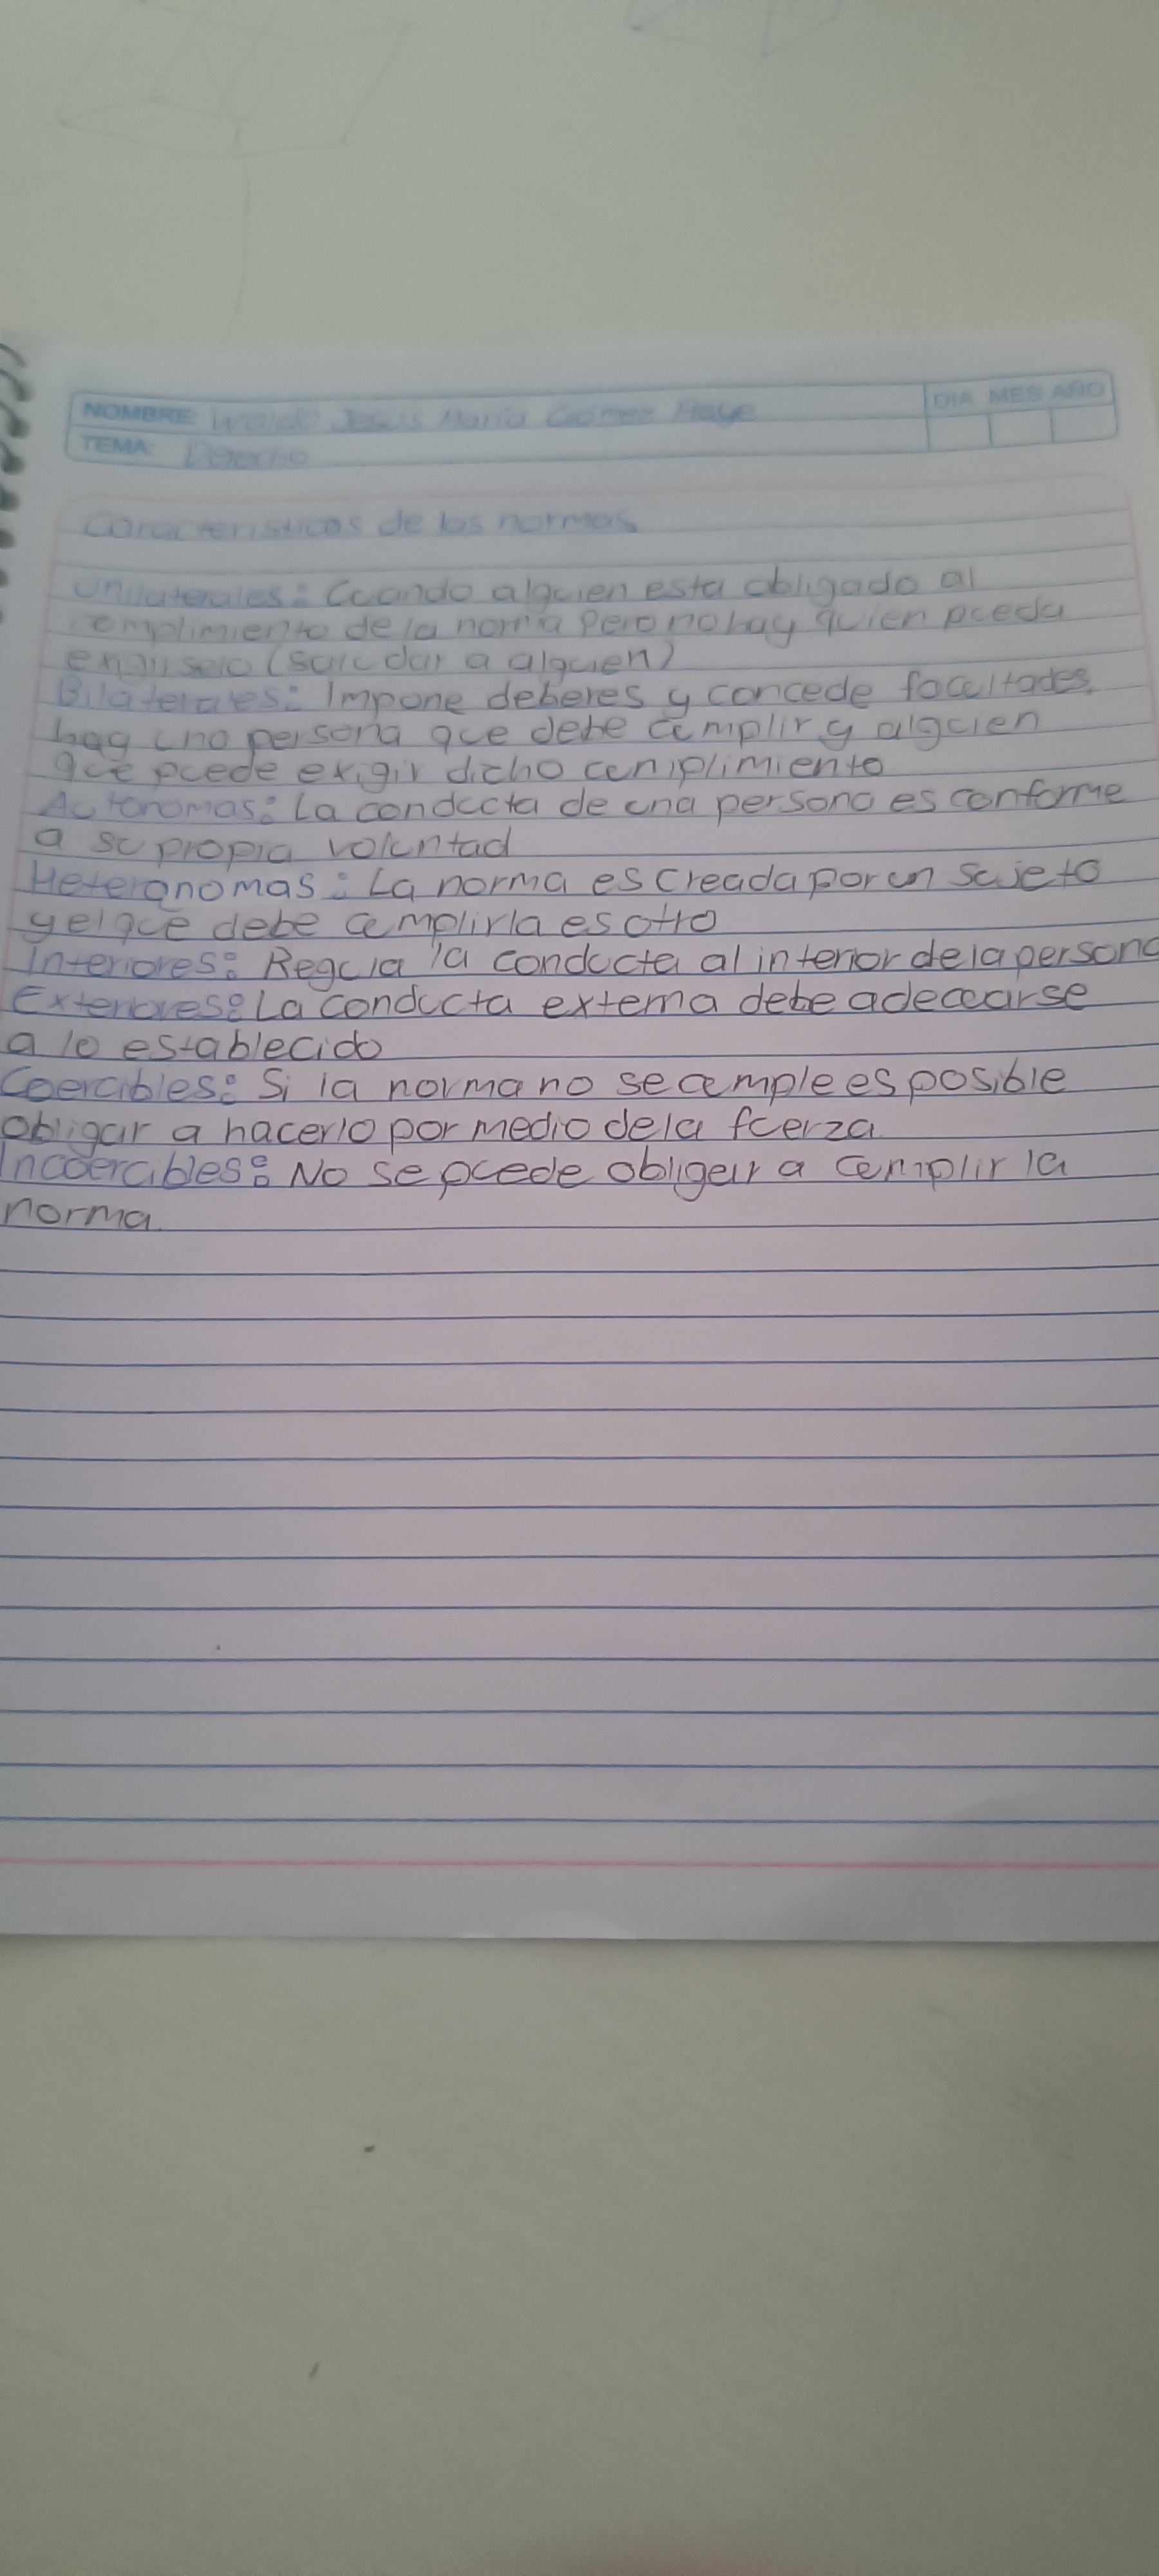 NOMBRE: Waldo Jesus Maria Gómez
DIA MES AÑO
TEMA: Derecho
Caracteristicas de las normas
Unilaterales: Cuando alguien esta obligado al
cumplimiento de la norma pero no hay quien pueda
exigirselo (saludar a alguien)
Bilaterales: Impone deberes y concede facultades,
hay una persona que debe cumplir y alguien
que puede exigir dicho cumplimiento
Autonomas: La conducta de una persona es conforme
a su propia voluntad
Heteronomas: La norma es creada por un sujeto
y el que debe cumplirla es otro
Interiores: Regula la conducta al interior de la persona
Exteriores: La conducta externa debe adecuarse
a lo establecido
Coercibles: Si la norma no se cumple es posible
obligar a hacerlo por medio de la fuerza.
Incoercibles: No se puede obligar a cumplir la
norma.